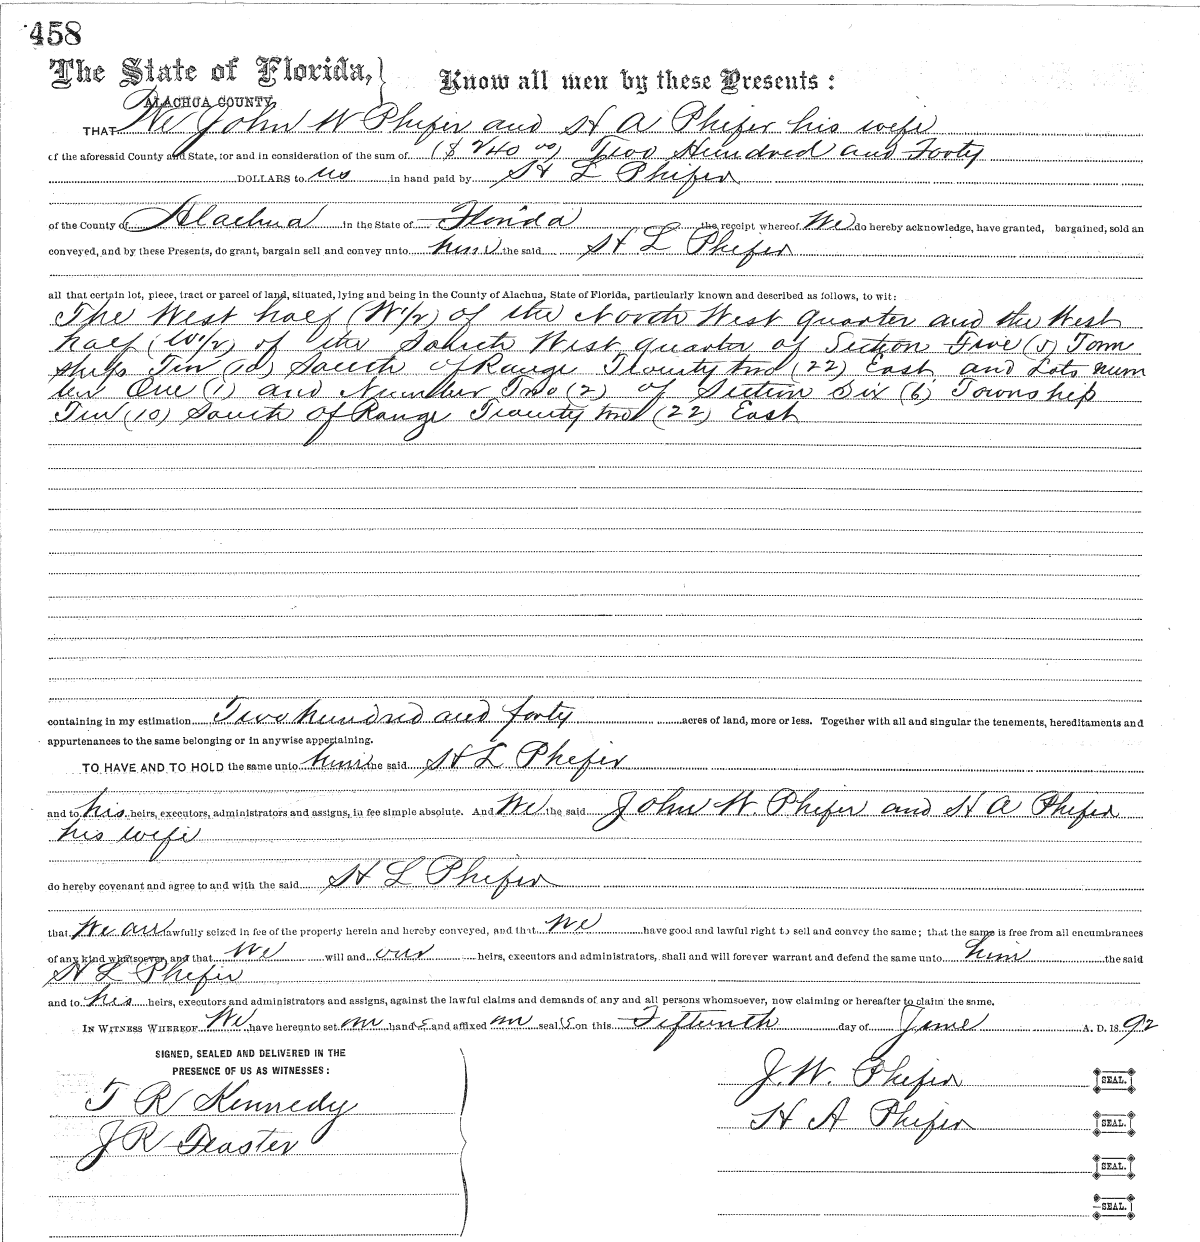 458
The State of Florida,} Know all men by these Presents:
ALACHUA COUNTY,
THAT We John W Phifer and H A Phifer his wife
of the aforesaid County and State, for and in consideration of the sum of ($240 00) Two Hundred and Forty
DOLLARS to us in hand paid by H L Phifer
of the County of Alachua in the State of Florida the receipt whereof We do hereby acknowledge, have granted, bargained, sold an
conveyed, and by these Presents, do grant, bargain sell and convey unto him the said H L Phifer
all that certain lot, piece, tract or parcel of land, situated, lying and being in the County of Alachua, State of Florida, particularly known and described as follows, to wit:
The West half (W1/2) of the North West quarter and the West
half (W1/2) of the South West quarter of Section Five (5) Town
ship Ten (10) South of Range Twenty two (22) East and Lots num
ber One (1) and Number Two (2) of Section Six (6) Township
Ten (10) South of Range Twenty two (22) East
containing in my estimation Two hundred and forty acres of land, more or less. Together with all and singular the tenements, hereditaments and
appurtenances to the same belonging or in anywise appertaining.
TO HAVE AND TO HOLD the same unto him the said H L Phifer
and to his heirs, executors, administrators and assigns, in fee simple absolute. And We the said John W. Phifer and H A Phifer
his wife
do hereby covenant and agree to and with the said H L Phifer
that We are lawfully seized in fee of the property herein and hereby conveyed, and that We have good and lawful right to sell and convey the same; that the same is free from all encumbrances
of any kind whatsoever, and that We will and our heirs, executors and administrators, shall and will forever warrant and defend the same unto him the said
H L Phifer
and to his heirs, executors and administrators and assigns, against the lawful claims and demands of any and all persons whomsoever, now claiming or hereafter to claim the same.
IN WITNESS WHEREOF We have hereunto set our hands and affixed our seals on this Fifteenth day of June A. D. 1892
SIGNED, SEALED AND DELIVERED IN THE
PRESENCE OF US AS WITNESSES:
J. W. Phifer SEAL.
T R Kennedy
H A Phifer SEAL.
J R Feaster
SEAL.
SEAL.